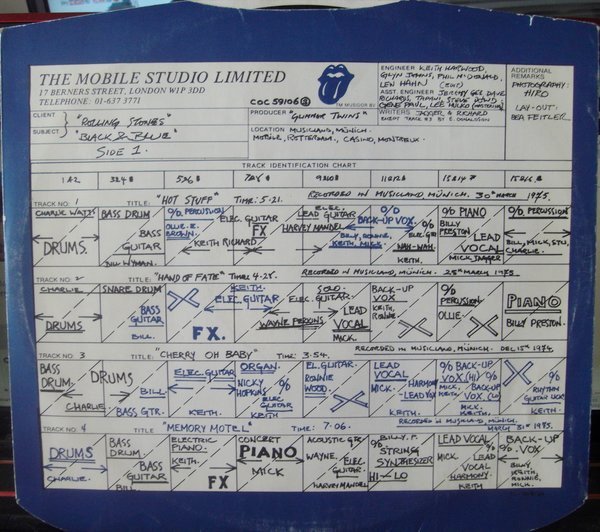 THE MOBILE STUDIO LIMITED
17 BERNERS STREET, LONDON W1P 3DD
TELEPHONE: 01-637 3771
COC 59106
TM MUSIDOR BV
ENGINEER KEITH HARWOOD,
GLYN JOHNS, PHIL McDONALD,
LEW HAHN
ASST ENGINEER JEREMY GEE, DAVE
RICHARDS, TAPANI, STEVE DOWD,
GENE PAUL, LEE HULKO (MASTERING)
ADDITIONAL
REMARKS
PHOTOGRAPHY:
HIRO
LAY-OUT:
BEA FEITLER.
CLIENT "ROLLING STONES"
SUBJECT "BLACK & BLUE"
SIDE 1.
PRODUCER "GLIMMER TWINS"
WRITERS JAGGER & RICHARD
EXCEPT TRACK #3 BY E. DONALDSON
LOCATION MUSICLAND, MÜNICH.
MOBILE, ROTTERDAM. CASINO, MONTREUX.
TRACK IDENTIFICATION CHART
1 & 2 3 & 4 5 & 6 7 & 8 9 & 10 11 & 12 13 & 14 15 & 16
TRACK NO. 1 TITLE: "HOT STUFF" TIME: 5.21. RECORDED IN MUSICLAND MÜNICH. 30TH MARCH 1975.
CHARLIE WATTS
DRUMS.
BASS DRUM
BASS
GUITAR
BILL WYMAN.
% PERCUSSION
OLLIE E.
BROWN.
ELEC GUITAR
KEITH RICHARD
FX
ELEC.
LEAD GUITAR
HARVEY MANDEL
O/D
BACK-UP VOX.
BILLY, RONNIE,
KEITH, MICK
ELEC GTR
NAH-NAH
KEITH.
% PIANO
BILLY
PRESTON
LEAD
VOCAL
MICK JAGGER
% PERCUSSION
BILL, MICK, STU,
CHARLIE.
TRACK NO. 2 TITLE: "HAND OF FATE" TIME: 4.28. RECORDED IN MUSICLAND, MÜNICH. 25TH MARCH 1975
CHARLIE
DRUMS
SNARE DRUM
BASS
GUITAR
BILL.
KEITH.
ELEC. GUITAR
FX.
SOLO
ELEC. GUITAR.
WAYNE PERKINS
LEAD
VOCAL
MICK.
BACK-UP
VOX
KEITH,
RONNIE
%
PERCUSSION
OLLIE.
PIANO
BILLY PRESTON.
TRACK NO. 3 TITLE: "CHERRY OH BABY" TIME: 3.54. RECORDED IN MUSICLAND, MÜNICH. DEC. 15TH 1974.
BASS
DRUM.
DRUMS
CHARLIE.
BILL.
BASS GTR.
ELEC. GUITAR
KEITH.
ORGAN.
NICKY
HOPKINS
%
ELEC
GUITAR
KEITH
EL. GUITAR
RONNIE
WOOD.
LEAD
VOCAL
MICK.
HARMONY
LEAD VOX
KEITH.
% BACK-UP
VOX.(HI) %
MICK,
KEITH.
BACK-UP
VOX (LO)
MICK.
KEITH.
%
RHYTHM
GUITAR
KEITH.
TRACK NO. 4 TITLE "MEMORY MOTEL" TIME: 7.06. RECORDED IN MUSICLAND, MÜNICH. MARCH 31ST 1975.
DRUMS
CHARLIE.
BASS
DRUM.
BASS
GUITAR
BILL
ELECTRIC
PIANO.
KEITH.
FX
CONCERT
PIANO
MICK
ACOUSTIC GTR
WAYNE.
ELEC.
GUITAR
HARVEY MANDEL
BILLY. P.
%
STRING
SYNTHESIZER
HI LO
LEAD VOCAL
MICK.
LEAD
VOCAL
HARMONY
KEITH
BACK-UP
% VOX. %
BILLY,
KEITH,
RONNIE,
MICK.